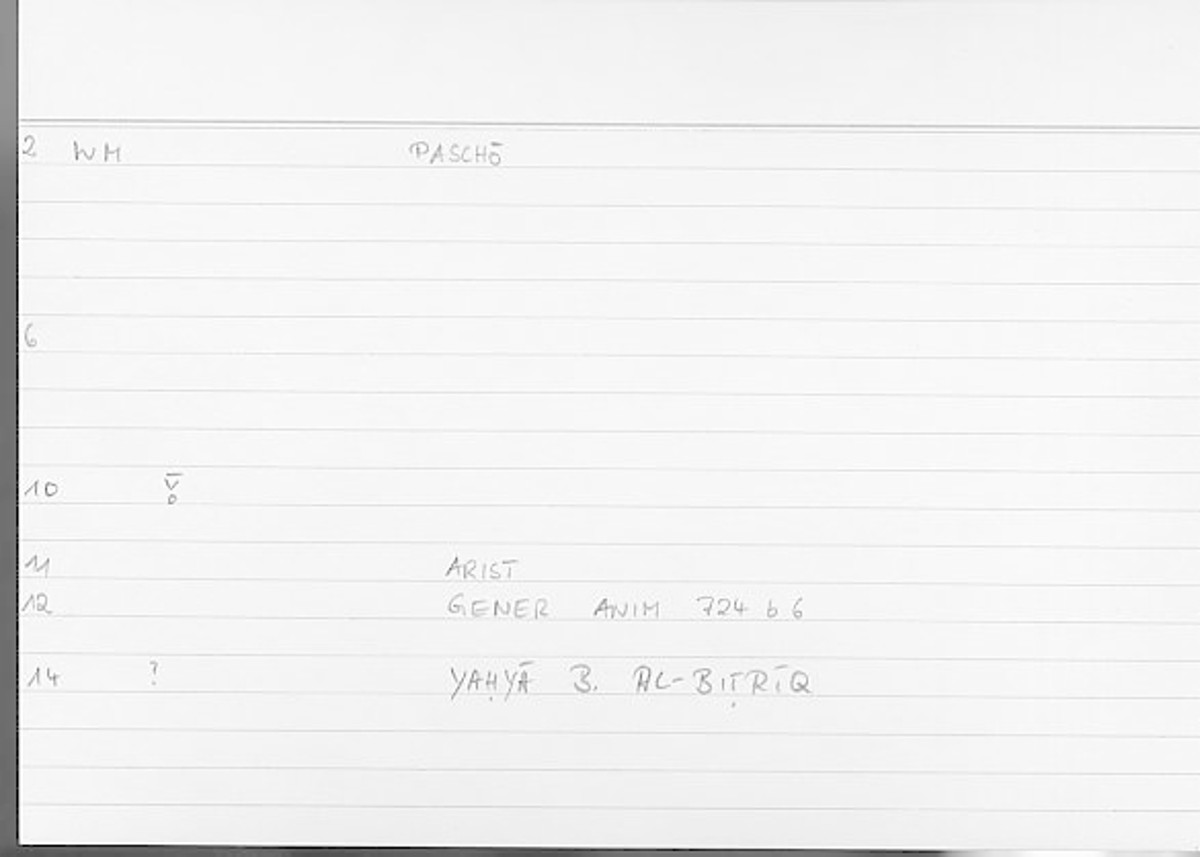 2 WM PASCHŌ
6
10
11 ARIST
12 GENER ANIM 724 b 6
14 ? YAḤYĀ B. AL-BIṬRĪQ